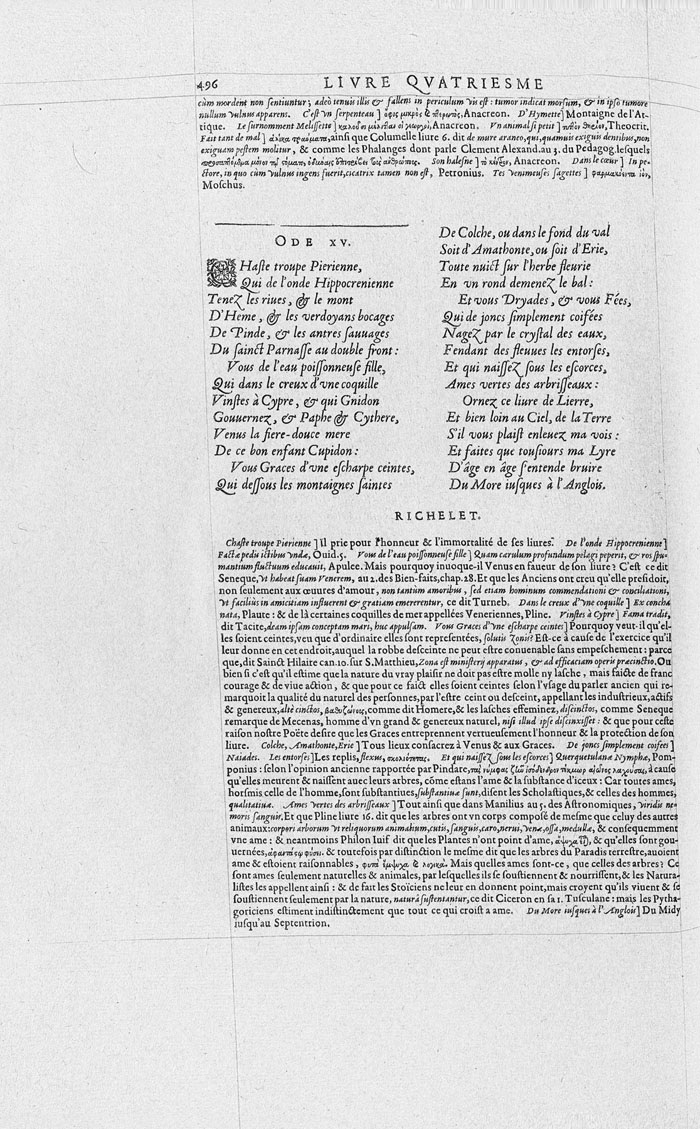 496 LIVRE QVATRIESME
cùm mordent non sentiuntur; adeò tenuis illis & fallens in periculum vis est: tumor indicat morsum, & in ipso tumore
nullum vulnus apparens. C'est vn serpenteau] Anacreon. D'Hymette] Montaigne de l'At-
tique. Le surnomment Melissette] Anacreon. Vn animal si petit] Theocrit.
Fait tant de mal] ainsi que Columelle liure 6. dit de mure araneo, qui, quamuis exiguis dentibus, non
exiguam pestem molitur, & comme les Phalanges dont parle Clement Alexand. au 3. du Pedagog. lesquels
Son halesne] Anacreon. Dans le cœur] In pe-
ctore, in quo cùm vulnus ingens fuerit, cicatrix tamen non est, Petronius. Tes venimeuses sagettes]
Moschus.
ODE XV.
CHaste troupe Pierienne,
Qui de l'onde Hippocrenienne
Tenez les riues, & le mont
D'Heme, & les verdoyans bocages
De Pinde, & les antres sauuages
Du sainct Parnasse au double front:
Vous de l'eau poissonneuse fille,
Qui dans le creux d'vne coquille
Vinstes à Cypre, & qui Gnidon
Gouuernez, & Paphe & Cythere,
Venus la fiere-douce mere
De ce bon enfant Cupidon:
Vous Graces d'vne escharpe ceintes,
Qui dessous les montaignes saintes
De Colche, ou dans le fond du val
Soit d'Amathonte, ou soit d'Erie,
Toute nuict sur l'herbe fleurie
En vn rond demenez le bal:
Et vous Dryades, & vous Fées,
Qui de joncs simplement coifées
Nagez par le crystal des eaux,
Fendant des fleuues les entorses,
Et qui naissez sous les escorces,
Ames vertes des arbrisseaux:
Ornez ce liure de Lierre,
Et bien loin au Ciel, de la Terre
S'il vous plaist enleuez ma vois:
Et faites que tousiours ma Lyre
D'âge en âge s'entende bruire
Du More iusques à l'Anglois.
RICHELET.
Chaste troupe Pierienne] Il prie pour l'honneur & l'immortalité de ses liures. De l'onde Hippocrenienne]
Factæ pedis ictibus vndæ, Ouid. 5. Vous de l'eau poissonneuse fille] Quam cærulum profundum pelagi peperit, & ros spu-
mantium fluctuum educauit, Apulee. Mais pourquoy inuoque-il Venus en faueur de son liure? C'est ce dit
Seneque, vt habeat suam Venerem, au 2. des Bien-faits, chap. 28. Et que les Anciens ont creu qu'elle presidoit,
non seulement aux œuures d'amour, non tantùm amoribus, sed etiam hominum commendationi & conciliationi,
vt faciliùs in amicitiam influerent & gratiam emererentur, ce dit Turneb. Dans le creux d'vne coquille] Ex concha
nata, Plaute: & de là certaines coquilles de mer appellées Veneriennes, Pline. Vinstes à Cypre] Fama tradit,
dit Tacite, deam ipsam conceptam mari, huc appulsam. Vous Graces d'vne escharpe ceintes] Pourquoy veut-il qu'el-
les soient ceintes, veu que d'ordinaire elles sont representées, solutis zonis? Est-ce à cause de l'exercice qu'il
leur donne en cet endroit, auquel la robbe desceinte ne peut estre conuenable sans empeschement: parce
que, dit Sainct Hilaire can. 10. sur S. Matthieu, Zona est ministerij apparatus, & ad efficaciam operis præcinctio. Ou
bien si c'est qu'il estime que la nature du vray plaisir ne doit pas estre molle ny lasche, mais faicte de franc
courage & de viue action, & que pour ce faict elle soient ceintes selon l'vsage du parler ancien qui re-
marquoit la qualité du naturel des personnes, par l'estre ceint ou desceint, appellant les industrieux, actifs
& genereux, altè cinctos, comme dit Homere, & les lasches effeminez, discinctos, comme Seneque
remarque de Mecenas, homme d'vn grand & genereux naturel, nisi illud ipse discinxisset: & que pour ceste
raison nostre Poëte desire que les Graces entreprennent vertueusement l'honneur & la protection de son
liure. Colche, Amathonte, Erie] Tous lieux consacrez à Venus & aux Graces. De joncs simplement coifées]
Naiades. Les entorses] Les replis, flexus, Et qui naissez sous les escorces] Querquetulanæ Nymphæ, Pom-
ponius: selon l'opinion ancienne rapportée par Pindare, à cause
qu'elles meurent & naissent auec leurs arbres, cõme estans l'ame & la substance d'iceux: Car toutes ames,
horsmis celle de l'homme, sont substantiues, substantiuæ sunt, disent les Scholastiques, & celles des hommes,
qualitatiuæ. Ames vertes des arbrisseaux] Tout ainsi que dans Manilius au 5. des Astronomiques, viridis ne-
moris sanguis. Et que Pline liure 16. dit que les arbres ont vn corps composé de mesme que celuy des autres
animaux: corpori arborum vt reliquorum animalium, cutis, sanguis, caro, nerui, venæ, ossa, medullæ, & consequemment
vne ame: & neantmoins Philon Iuif dit que les Plantes n'ont point d'ame, & qu'elles sont gou-
uernées, & toutefois par distinction le mesme dit que les arbres du Paradis terrestre, auoient
ame & estoient raisonnables, Mais quelles ames sont-ce, que celles des arbres? Ce
sont ames seulement naturelles & animales, par lesquelles ils se soustiennent & nourrissent, & les Natura-
listes les appellent ainsi: & de fait les Stoïciens ne leur en donnent point, mais croyent qu'ils viuent & se
soustiennent seulement par la nature, naturâ sustentantur, ce dit Ciceron en sa 1. Tusculane: mais les Pytha-
goriciens estiment indistinctement que tout ce qui croist a ame. Du More iusques à l'Anglois] Du Midy
iusqu'au Septentrion.